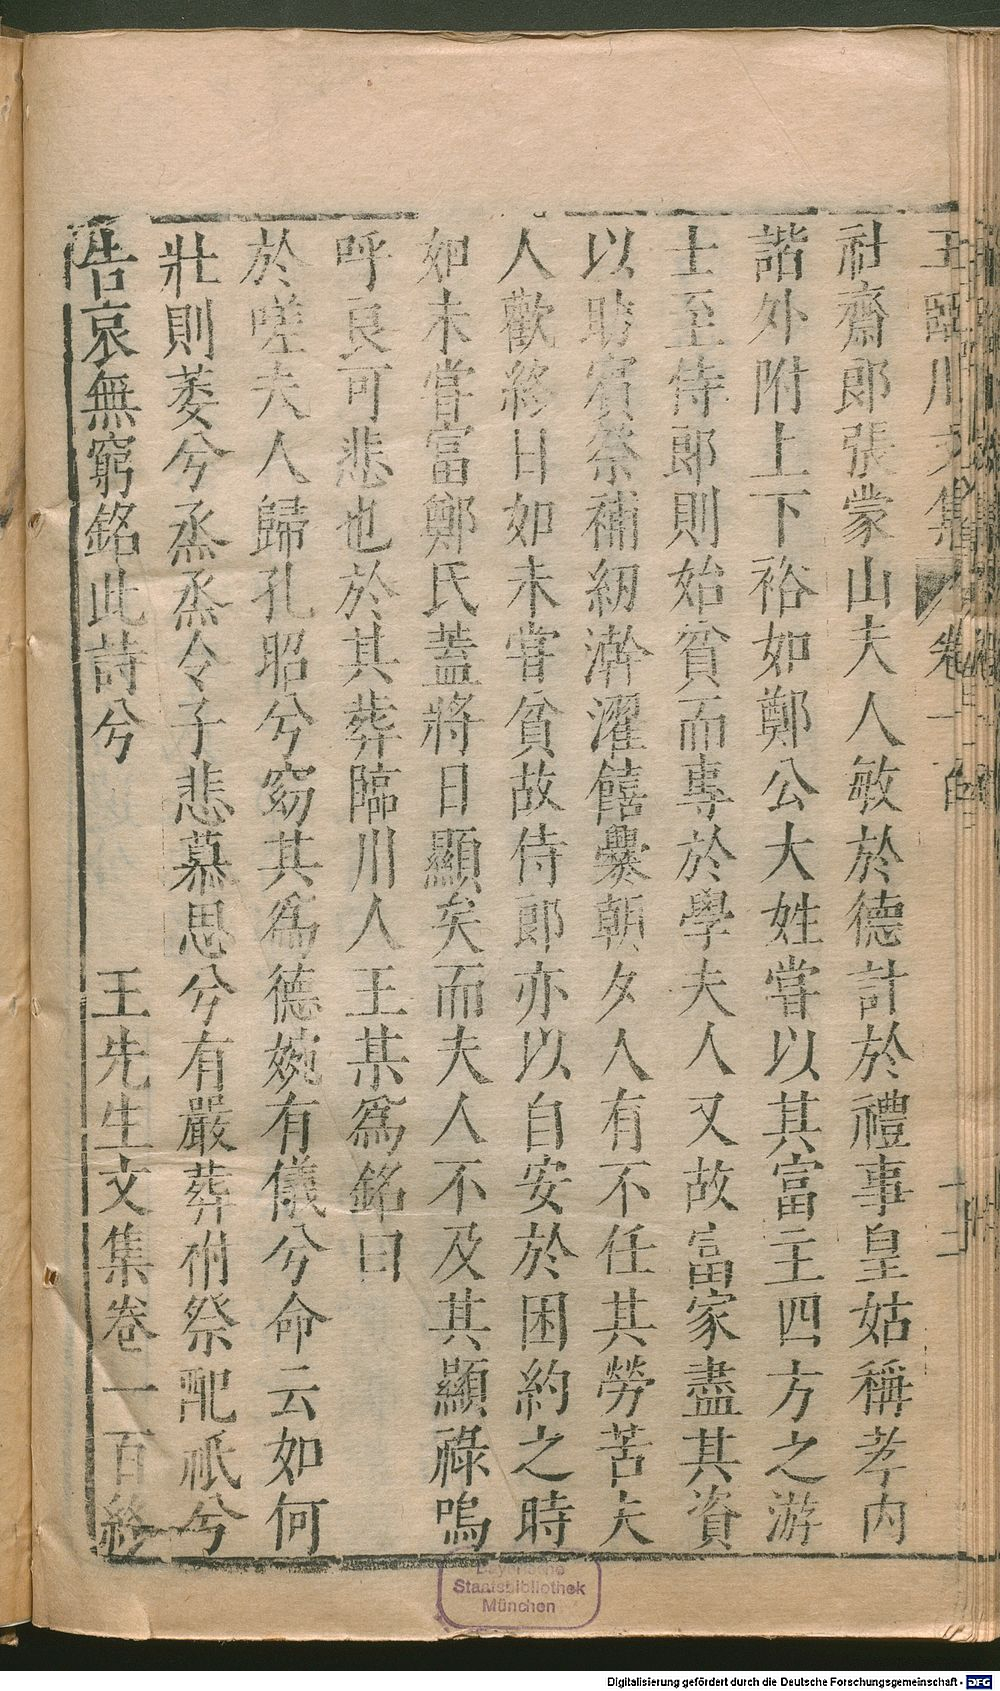 王臨川文集 卷一百 十二
社齋郎張蒙山夫人敏於德計於禮事皇姑稱孝內
諧外附上下裕如鄭公大姓嘗以其富主四方之游
士至侍郎則始貧而專於學夫人又故富家盡其資
以助賓祭補紉澣濯饎爨朝夕人有不任其勞苦夫
人歡終日如未嘗貧故侍郎亦以自安於困約之時
如未嘗富鄭氏蓋將日顯矣而夫人不及其顯祿嗚
呼良可悲也於其葬臨川人王某爲銘曰
於嗟夫人歸孔昭兮窈其爲德婉有儀兮命云如何
壯則萎兮烝烝令子悲慕思兮有嚴葬祔祭配祇兮
告哀無窮銘此詩兮 王先生文集卷一百終
Bayerische
Staatsbibliothek
München
Digitalisierung gefördert durch die Deutsche Forschungsgemeinschaft - DFG